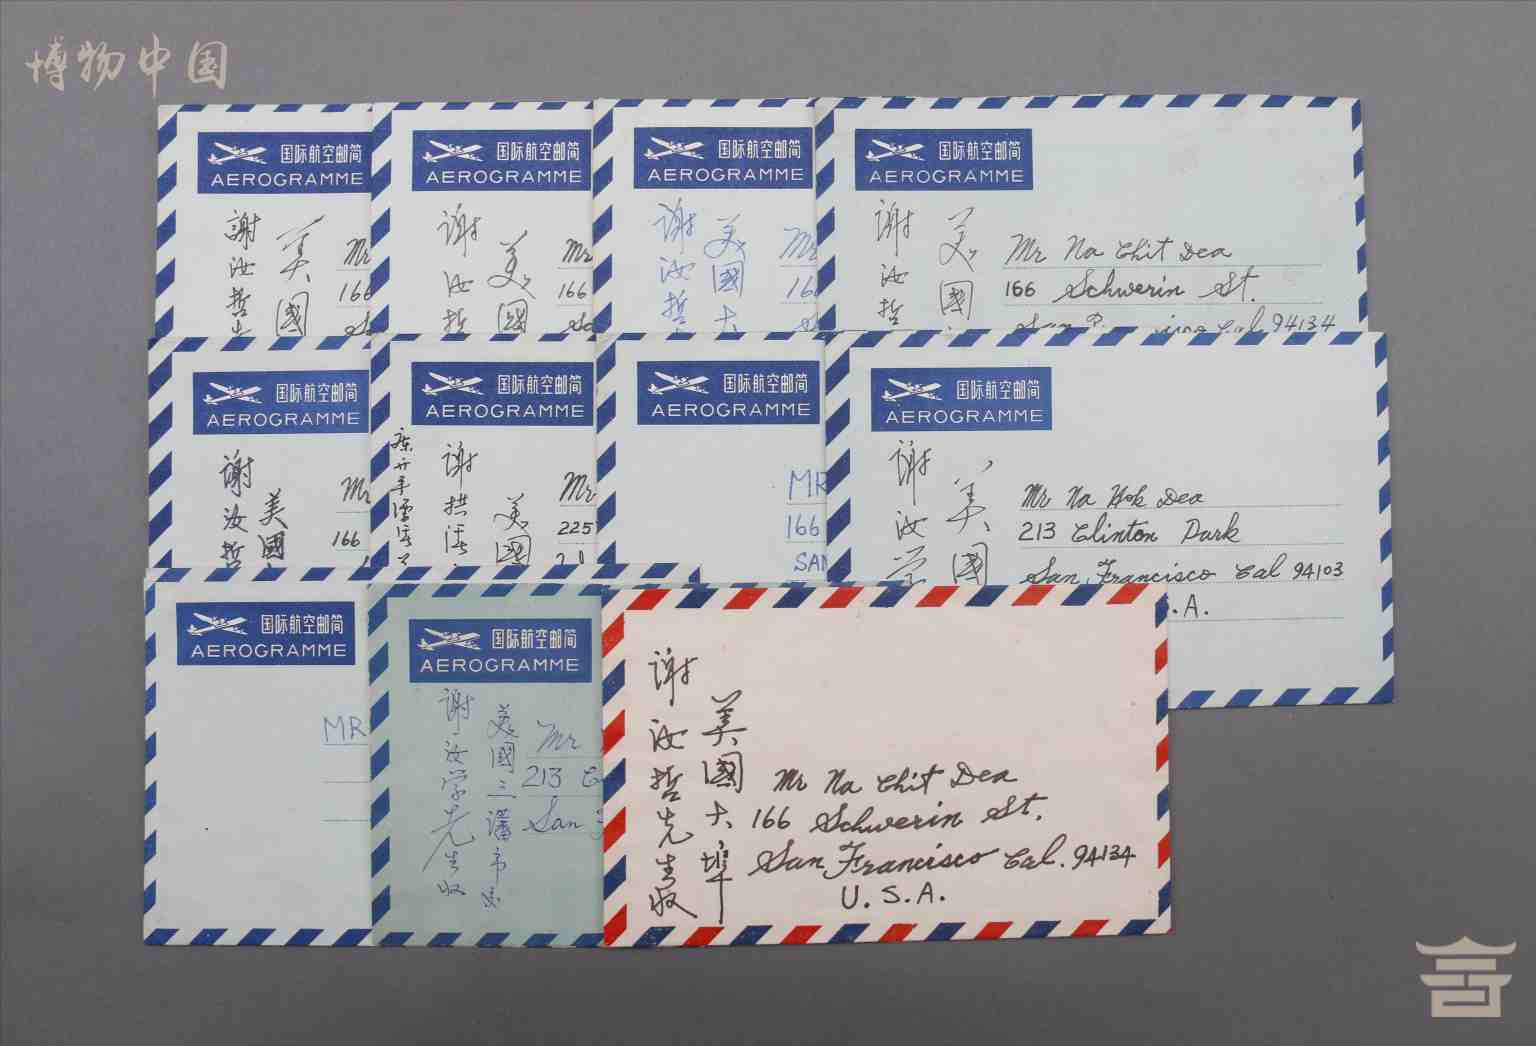 博物中国
国际航空邮简
AEROGRAMME
謝汝哲
美國
Mr
166
国际航空邮简
AEROGRAMME
谢汝哲
美國
Mr
166
国际航空邮简
AEROGRAMME
谢汝哲
美國大
Mr
16
国际航空邮简
AEROGRAMME
谢汝哲
美國
Mr Na Chit Dea
166 Schwerin St.
San Francisco Cal 94134
国际航空邮简
AEROGRAMME
谢汝哲
美國
Mr
166
国际航空邮简
AEROGRAMME
谢拱
美國
Mr
225
国际航空邮简
AEROGRAMME
MR
166
SAN
国际航空邮简
AEROGRAMME
谢汝学
美國
Mr Na Hok Dea
213 Clinton Park
San Francisco Cal 94103
.A.
国际航空邮简
AEROGRAMME
MR
国际航空邮简
AEROGRAMME
谢汝学先生收
美國三藩市
Mr
213 C
San
谢汝哲先生收
美國大埠
Mr Na Chit Dea
166 Schwerin St.
San Francisco Cal. 94134
U.S.A.